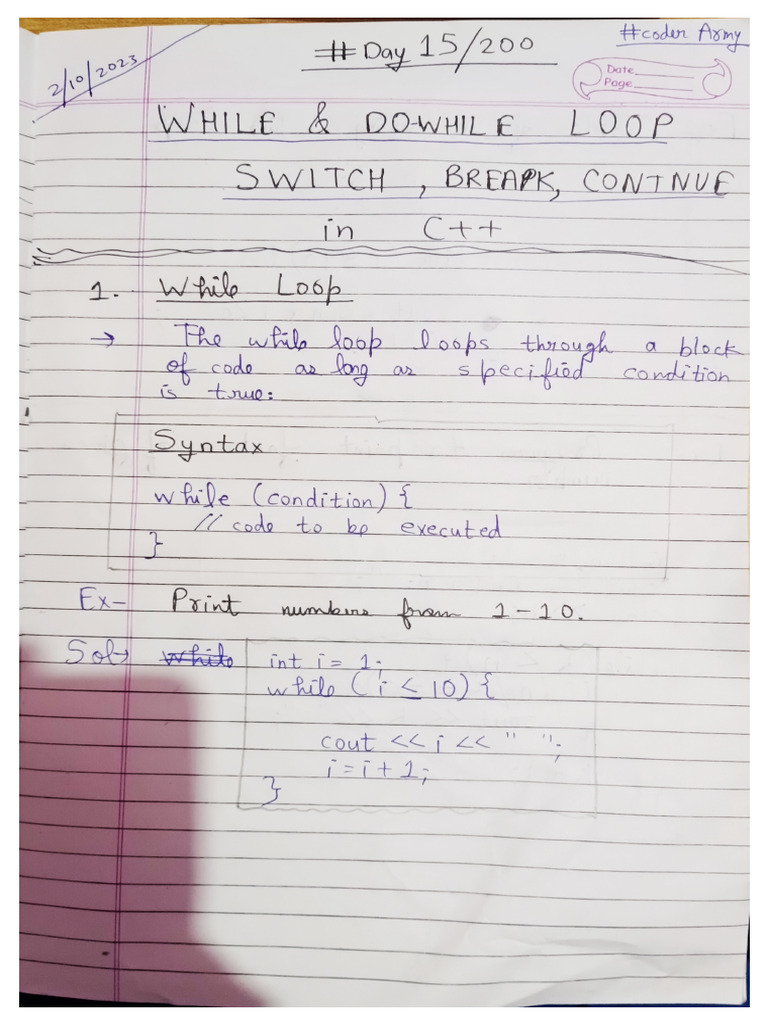 2/10/2023
# Day 15/200
#coder Army
Date
Page
WHILE & DO-WHILE LOOP
SWITCH, BREAK, CONTNUE
in C++
1. While Loop
→ The while loop loops through a block
of code as long as specified condition
is true:
Syntax
while (condition) {
// code to be executed
}
Ex- Print numbers from 1-10.
Sol→ while int i = 1;
while (i ≤ 10) {
cout << i << " ";
i = i + 1;
}